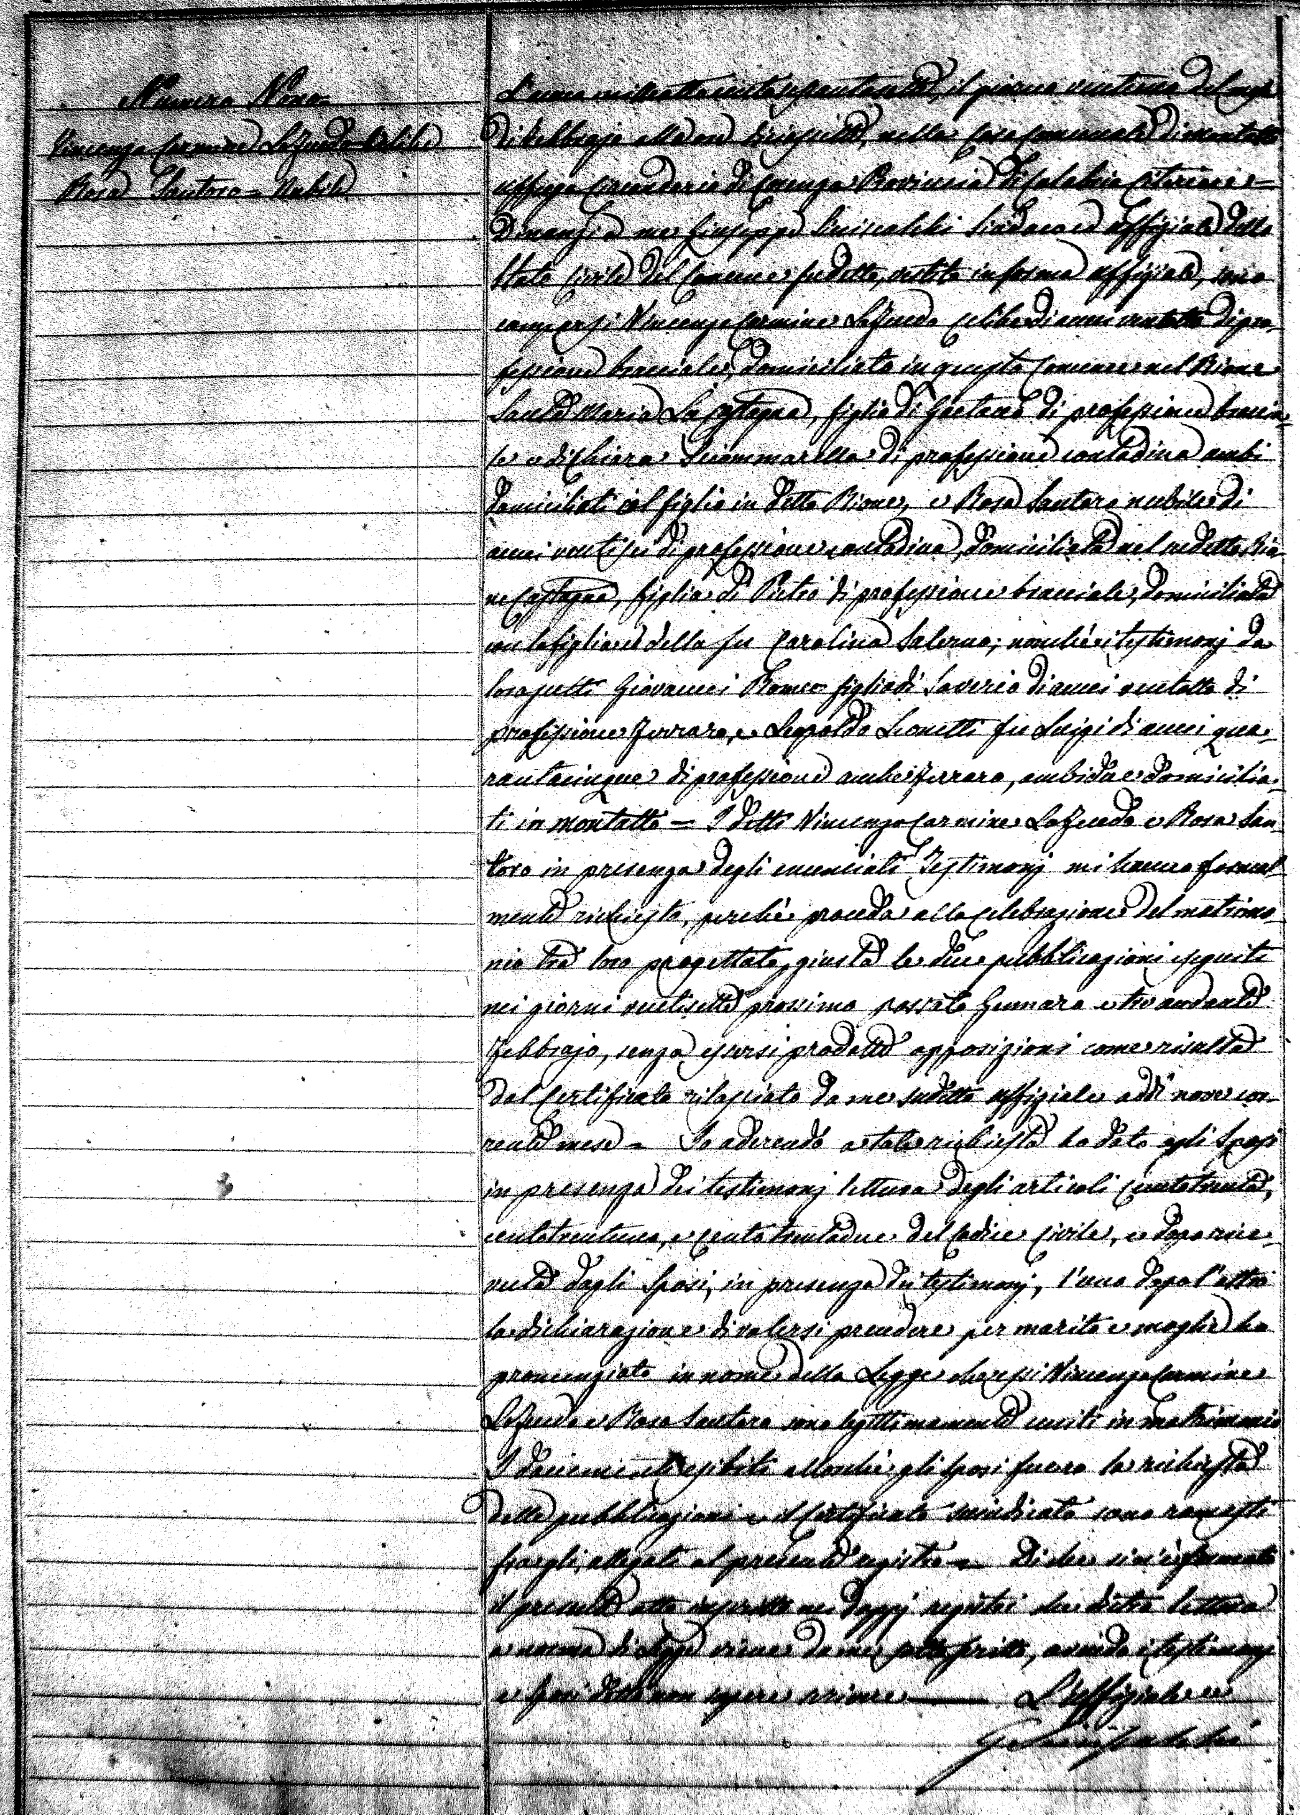 Numero Nono
Vincenzo Carmine Lo Feudo Celibe
Rosa Santoro = Nubile
L'anno milleottocentosettanta, il giorno del mese
di Febbrajo alle ore, nella Casa Comunale di Montalto
Uffugo Circondario di Cosenza Provincia di Calabria Citeriore =
Dinanzi a me Giuseppe Sindaco ed Uffiziale dello
Stato Civile del Comune sudetto, vestito in forma uffiziale, sono
comparsi Vincenzo Carmine Lo Feudo celibe di anni ventotto di pro-
fessione bracciale, domiciliato in questo Comune nel Rione
Santa Maria La Castagna, figlio di Gaetano di professione braccia-
le e di Chiara Sciammarella di professione contadina ambi
domiciliati col figlio in detto Rione, e Rosa Santoro nubile di
anni ventisei di professione contadina, domiciliata nel sudetto Rio-
ne Castagna, figlia di Pietro di professione bracciale, domiciliato
con la figlia e della fu Carolina Salerno; nonché i testimonj da
loro scelti Giovanni Romeo figlio di Saverio di anni ventotto di
professione Ferraro, e Leopoldo Lionetti fu Luigi di anni qua-
rantacinque di professione anche Ferraro, ambidue domicilia-
ti in Montalto = I detti Vincenzo Carmine Lo Feudo e Rosa San-
toro in presenza degli enunciati Testimonj mi hanno formal-
mente richiesto, perché proceda alla celebrazione del matrimo-
nio tra loro progettato, giusta le due pubblicazioni eseguite
nei giorni ventisette prossimo passato Gennaro e tre andante
Febbrajo, senza essersi prodotte opposizioni come risulta
dal Certificato rilasciato da me sudetto uffiziale addì nove cor-
rente mese = Io aderendo a tale richiesta ho dato agli Sposi
in presenza dei testimonj lettura degli articoli Centotrenta,
centotrentuno, e Centotrentadue del Codice Civile, e dopo rice-
vuta dagli Sposi, in presenza dei testimonj, l'uno dopo l'altro
la dichiarazione di volersi prendere per marito e moglie ho
pronunziato in nome della Legge che essi Vincenzo Carmine
Lo Feudo e Rosa Santoro sono legittimamente uniti in matrimonio
I documenti esibiti allorché gli Sposi fecero la richiesta
delle pubblicazioni e il Certificato suindicato sono rimasti
fra gli allegati al presente registro = Di che si è formato
il presente atto inserito nei doppj registri che dietro lettura
a norma di Legge viene da me sottoscritto, avendo i testimonj
e Sposi detto non sapere scrivere — L'Uffiziale